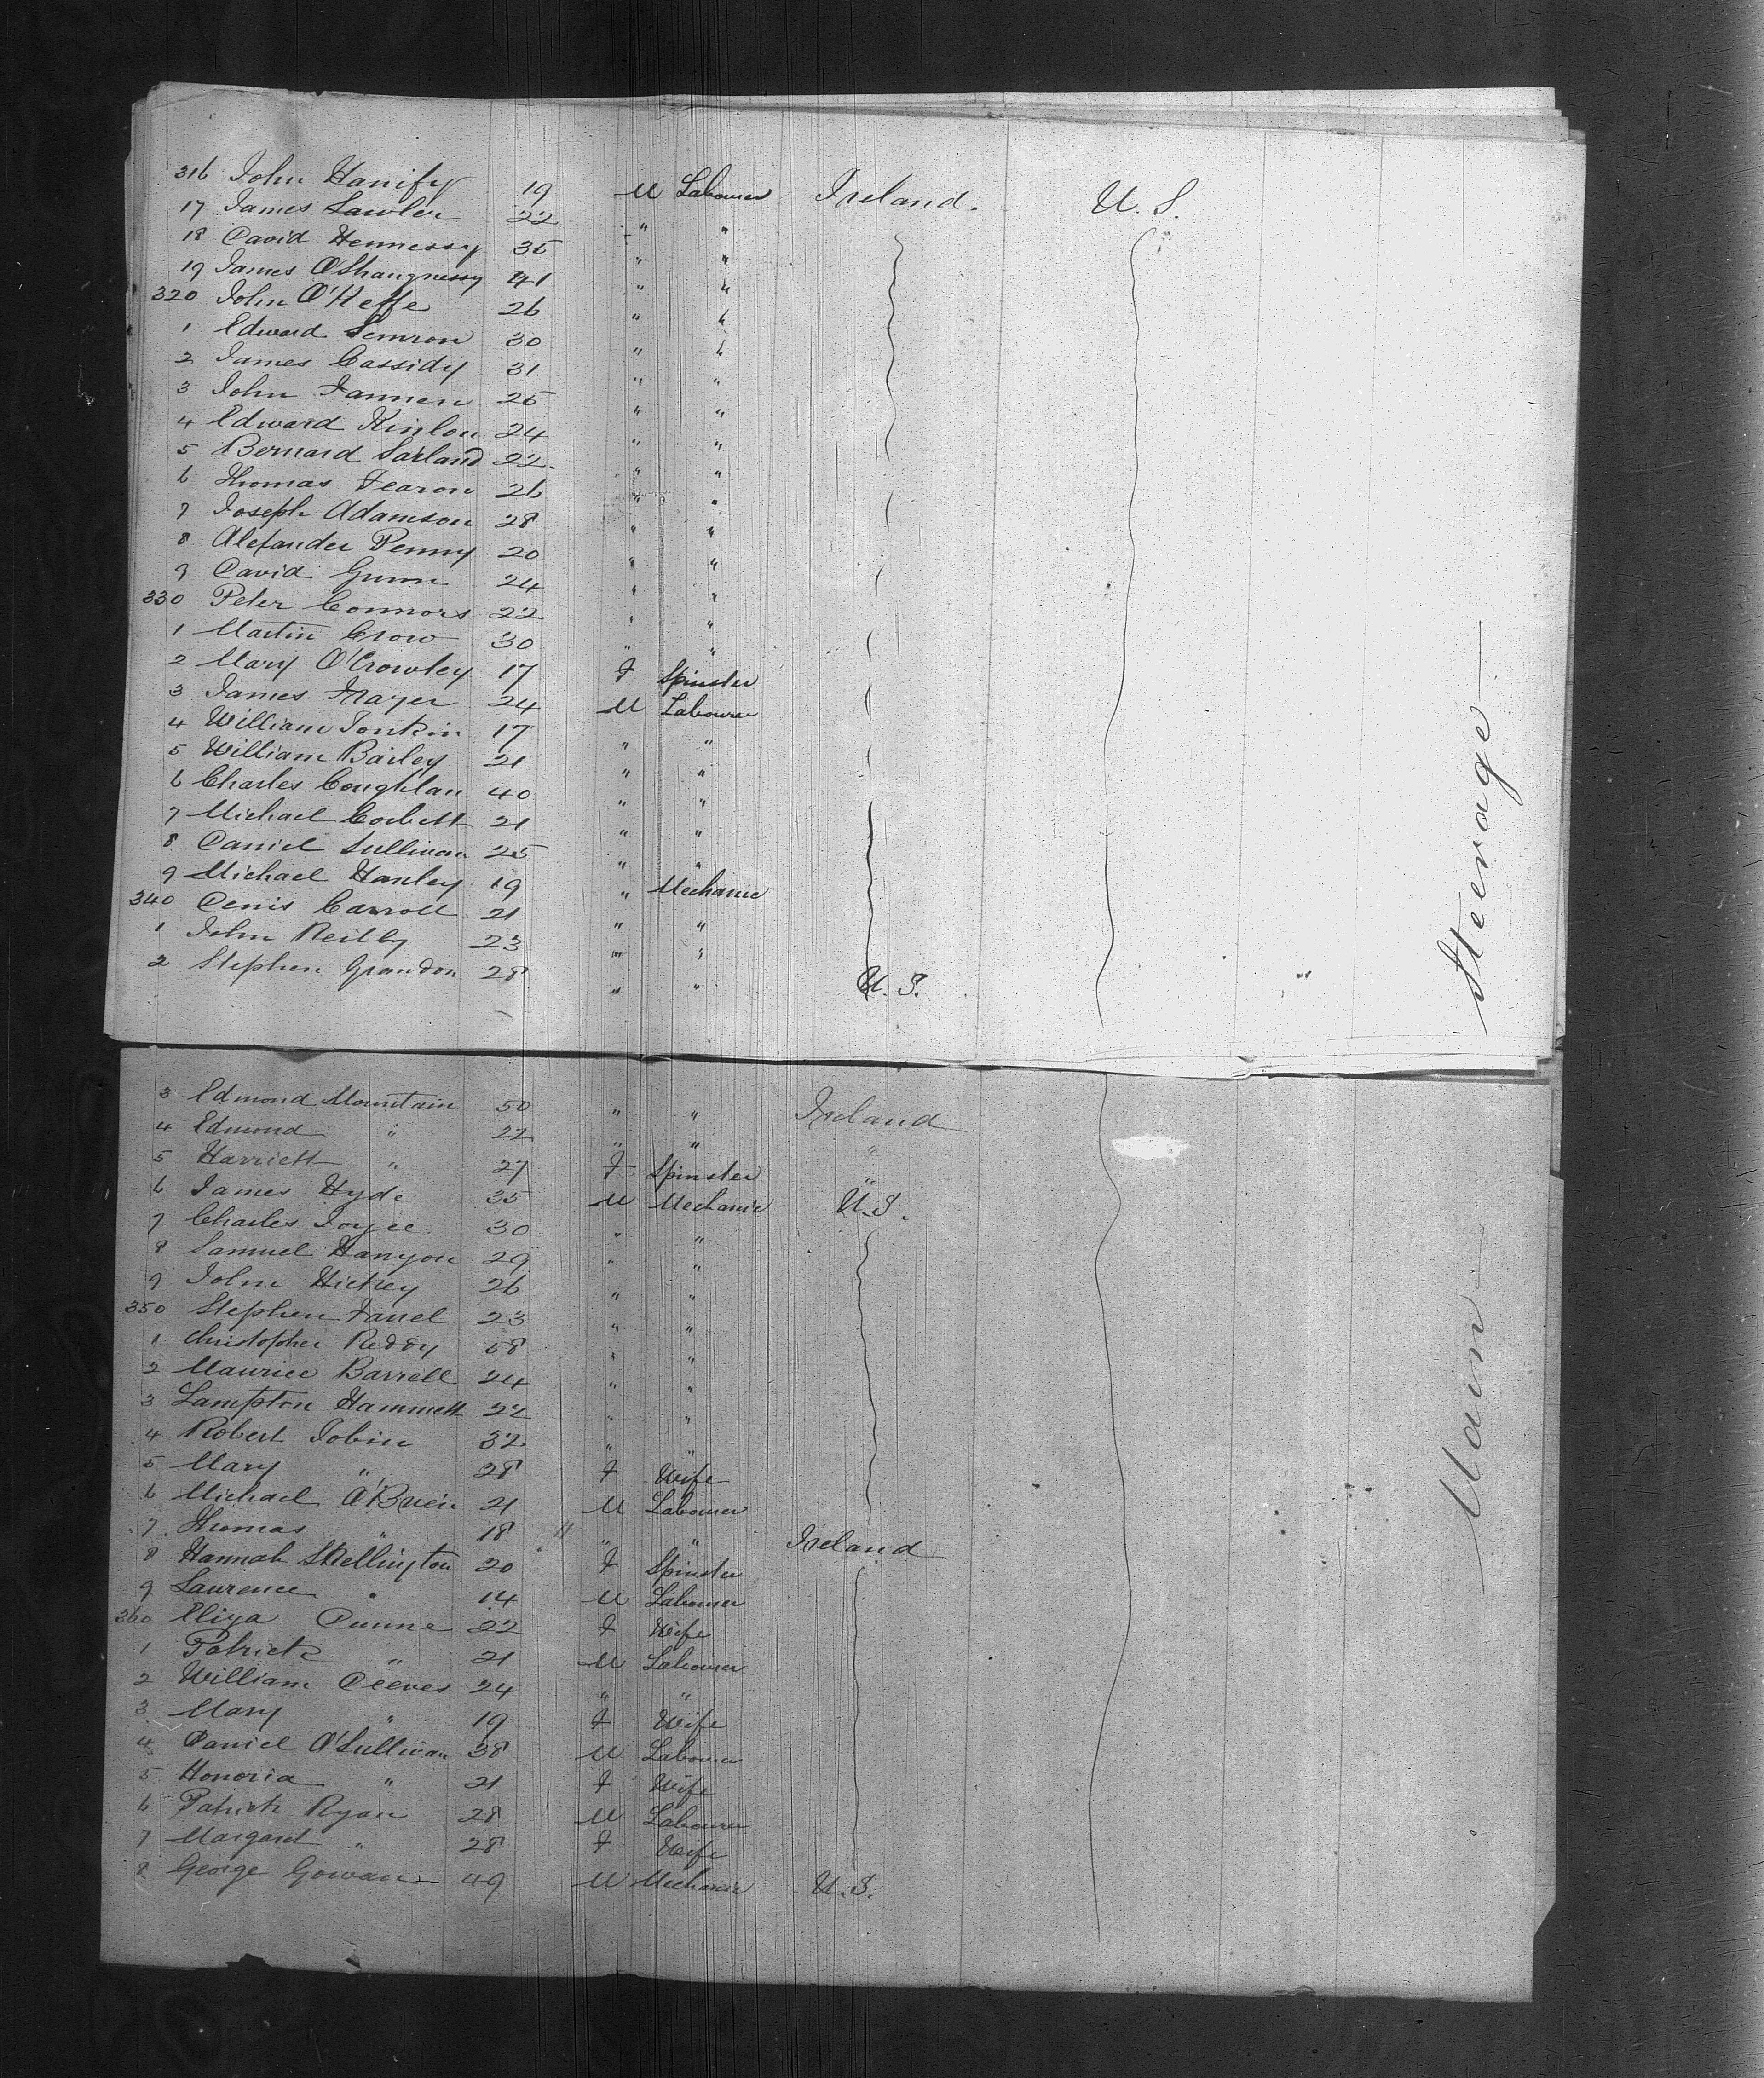 316 John Hanify 19 M Labourer Ireland. U. S.
17 James Lawler 22 " "
18 David Hennessy 35 " "
19 James O'Shaugnessy 41 " "
320 John O'Keffe 26 " "
1 Edward 30 " "
2 James Cassidy 31 " "
3 John Fannen 25 " "
4 Edward Kinlon 24 " "
5 Bernard Sarland 22 " "
6 Thomas Fearon 26 " "
7 Joseph Adamson 28 " "
8 Alexander Penny 20 " "
9 David Gunn 24 " "
330 Peter Connors 22 " "
1 Martin Crow 30 " "
2 Mary O'Crowley 17 F Spinster
3 James 24 M Labourer
4 William Jonkin 17 " "
5 William Bailey 21 " "
6 Charles Coughlan 40 " "
7 Michael Corbett 21 " "
8 Daniel Sullivan 25 " "
9 Michael Hanley 19 " Mechanic
340 Denis Carroll 21 " "
1 John Reilly 23 " "
2 Stephen Grandon 28 " " U. S. "
Steerage
3 Edmond Mountain 50 " " Ireland
4 Edmond " 22 " " "
5 Harriett " 27 F Spinster "
6 James Hyde 35 M Mechanic U.S.
7 Charles Joyce 30 " "
8 Samuel Hanyon 29 " "
9 John Hickey 26 " "
350 Stephen Farrel 23 " "
1 Christopher Reddy 58 " "
2 Maurice Barrell 24 " "
3 Lampton Hammett 22 " "
4 Robert Tobin 32 " "
5 Mary " 28 F Wife
6 Michael O'Brien 21 M Labourer
7 Thomas " 18 " " Ireland
8 Hannah Skellington 20 F Spinster
9 Laurence " 14 M Labourer
360 Eliza Dunne 22 F Wife
1 Patrick " 21 M Labourer
2 William Deeves 24 " "
3 Mary " 19 F Wife
4 Daniel O'Sullivan 38 M Labourer
5 Honoria " 21 F Wife
6 Patrick Ryan 28 M Labourer
7 Margaret " 28 F Wife
8 George Gowan 49 M Mechanic U.S.
Main